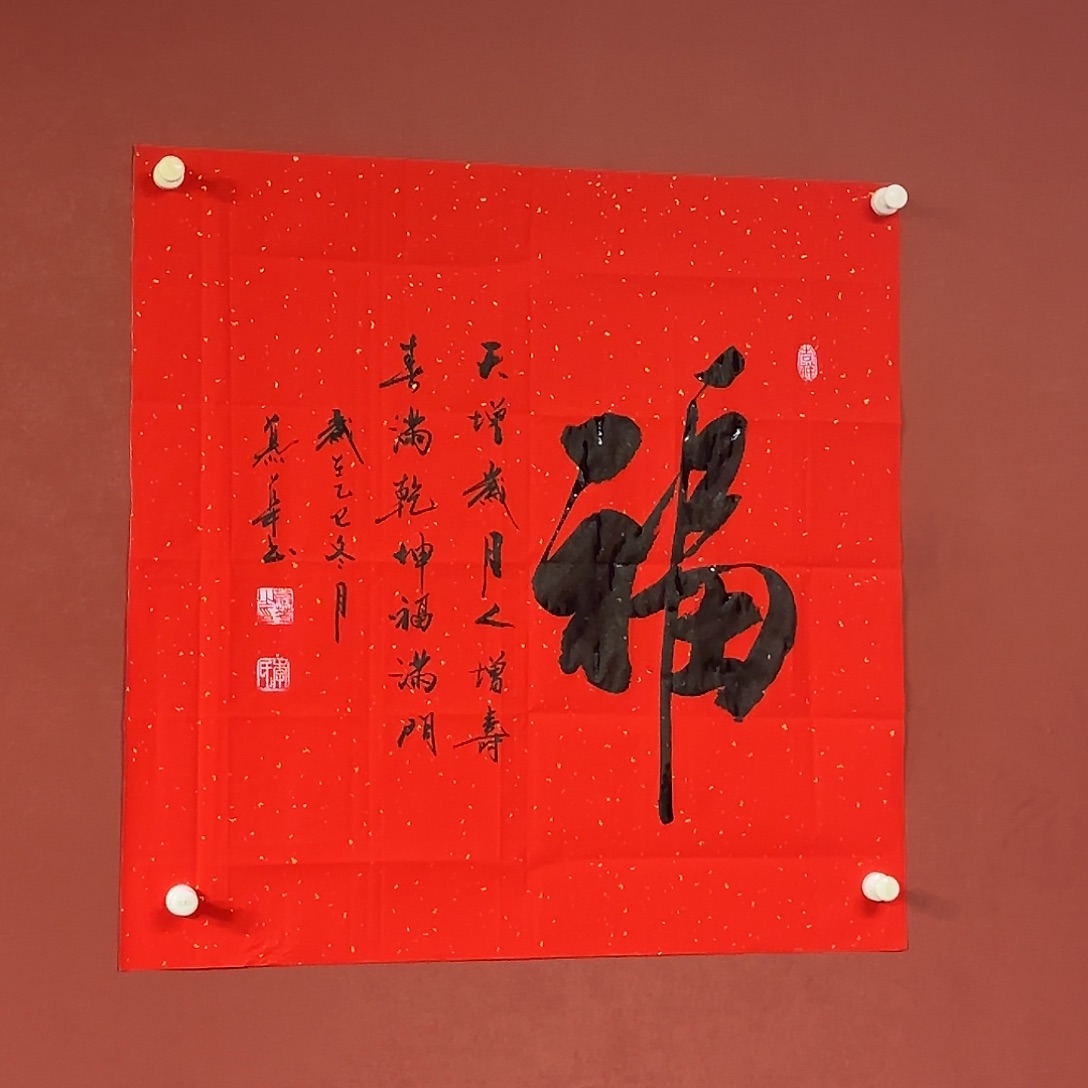 福
天增歲月人增壽
春滿乾坤福滿門
歲至乙巳冬月
吉祥